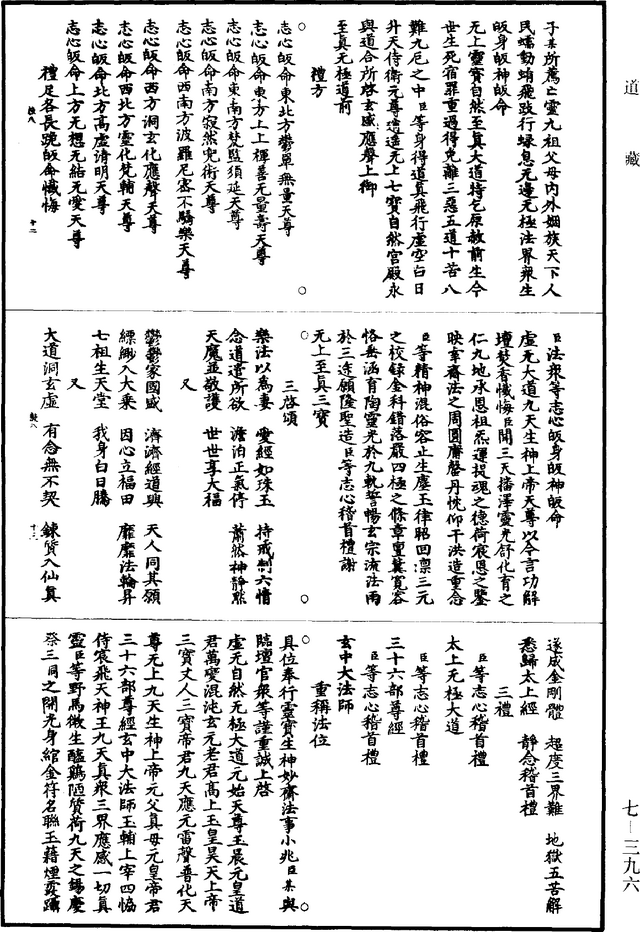 道藏
子某所薦亡靈九祖父母內外姻族天下人
民蠕動蛸飛跂行蜎息无邊无極法界眾生
皈身皈神皈命
无上靈寶自然至真大道特乞原赦前生今
世生死宿罪重過得免離三惡五道十苦八
難九厄之中臣等身得道真飛行虛空白日
升天侍衛元尊逍遙无上七寶自然宮殿永
與道合所啓玄感應聲上御
至真无極道前
禮方
志心皈命東北方鬱單無量天尊
志心皈命東方上上禪善无量壽天尊
志心皈命東南方梵監須延天尊
志心皈命南方寂然兜術天尊
志心皈命西南方波羅尼密不驕樂天尊
志心皈命西方洞玄化應聲天尊
志心皈命西北方靈化梵輔天尊
志心皈命北方高虛清明天尊
志心皈命上方无想无結无愛天尊
禮足各長跪皈命懺悔
十二
臣法眾等志心皈身皈神皈命
虛无大道九天生神上帝天尊以今言功解
壇焚香懺悔臣聞三天播澤靈光舒化育之
仁九地承恩祖炁運提魂之德荷衮恩之鑒
映幸齋法之周圓磨罄丹忱仰干洪造重念
臣等精神混俗容止生塵玉律昭回凛三元
之校錄金科錯落嚴四極之條章亶冀寬容
恪垂涵育陶靈光於九軌誓暢玄宗流法雨
於三途願隆聖造臣等志心稽首禮謝
无上至真三寶
三啓頌
樂法以為妻 愛經如珠玉 持戒制六情
念道遣所欲 澹泊正氣停 蕭然神靜默
天魔並敬護 世世享大福
又
鬱鬱家國盛 濟濟經道興 天人同其願
縹緲入大乘 因心立福田 靡靡法輪昇
七祖生天堂 我身白日騰
又
大道洞玄虛 有念無不契 鍊質入仙真
十三
遂成金剛體 超度三界難 地獄五苦解
悉歸太上經 靜念稽首禮
三禮
臣等志心稽首禮
太上无極大道
臣等志心稽首禮
三十六部尊經
臣等志心稽首禮
玄中大法師
重稱法位
具位奉行靈寶生神妙齋法事小兆臣某與
臨壇官眾等謹重誠上啓
虛无自然元極大道元始天尊玉晨元皇道
君萬變混沌玄元老君高上玉皇昊天上帝
三寶丈人三寶帝君九天應元雷聲普化天
尊无上九天生神上帝元父真母元皇帝君
三十六部尊經玄中大法師玉輔上宰四協
侍宸飛天神王九天真眾三界應感一切真
靈臣等野馬微生醯鷄陋質荷九天之錫慶
發三洞之開光身綰金符名聯玉籍煙霞躡
七—三九六